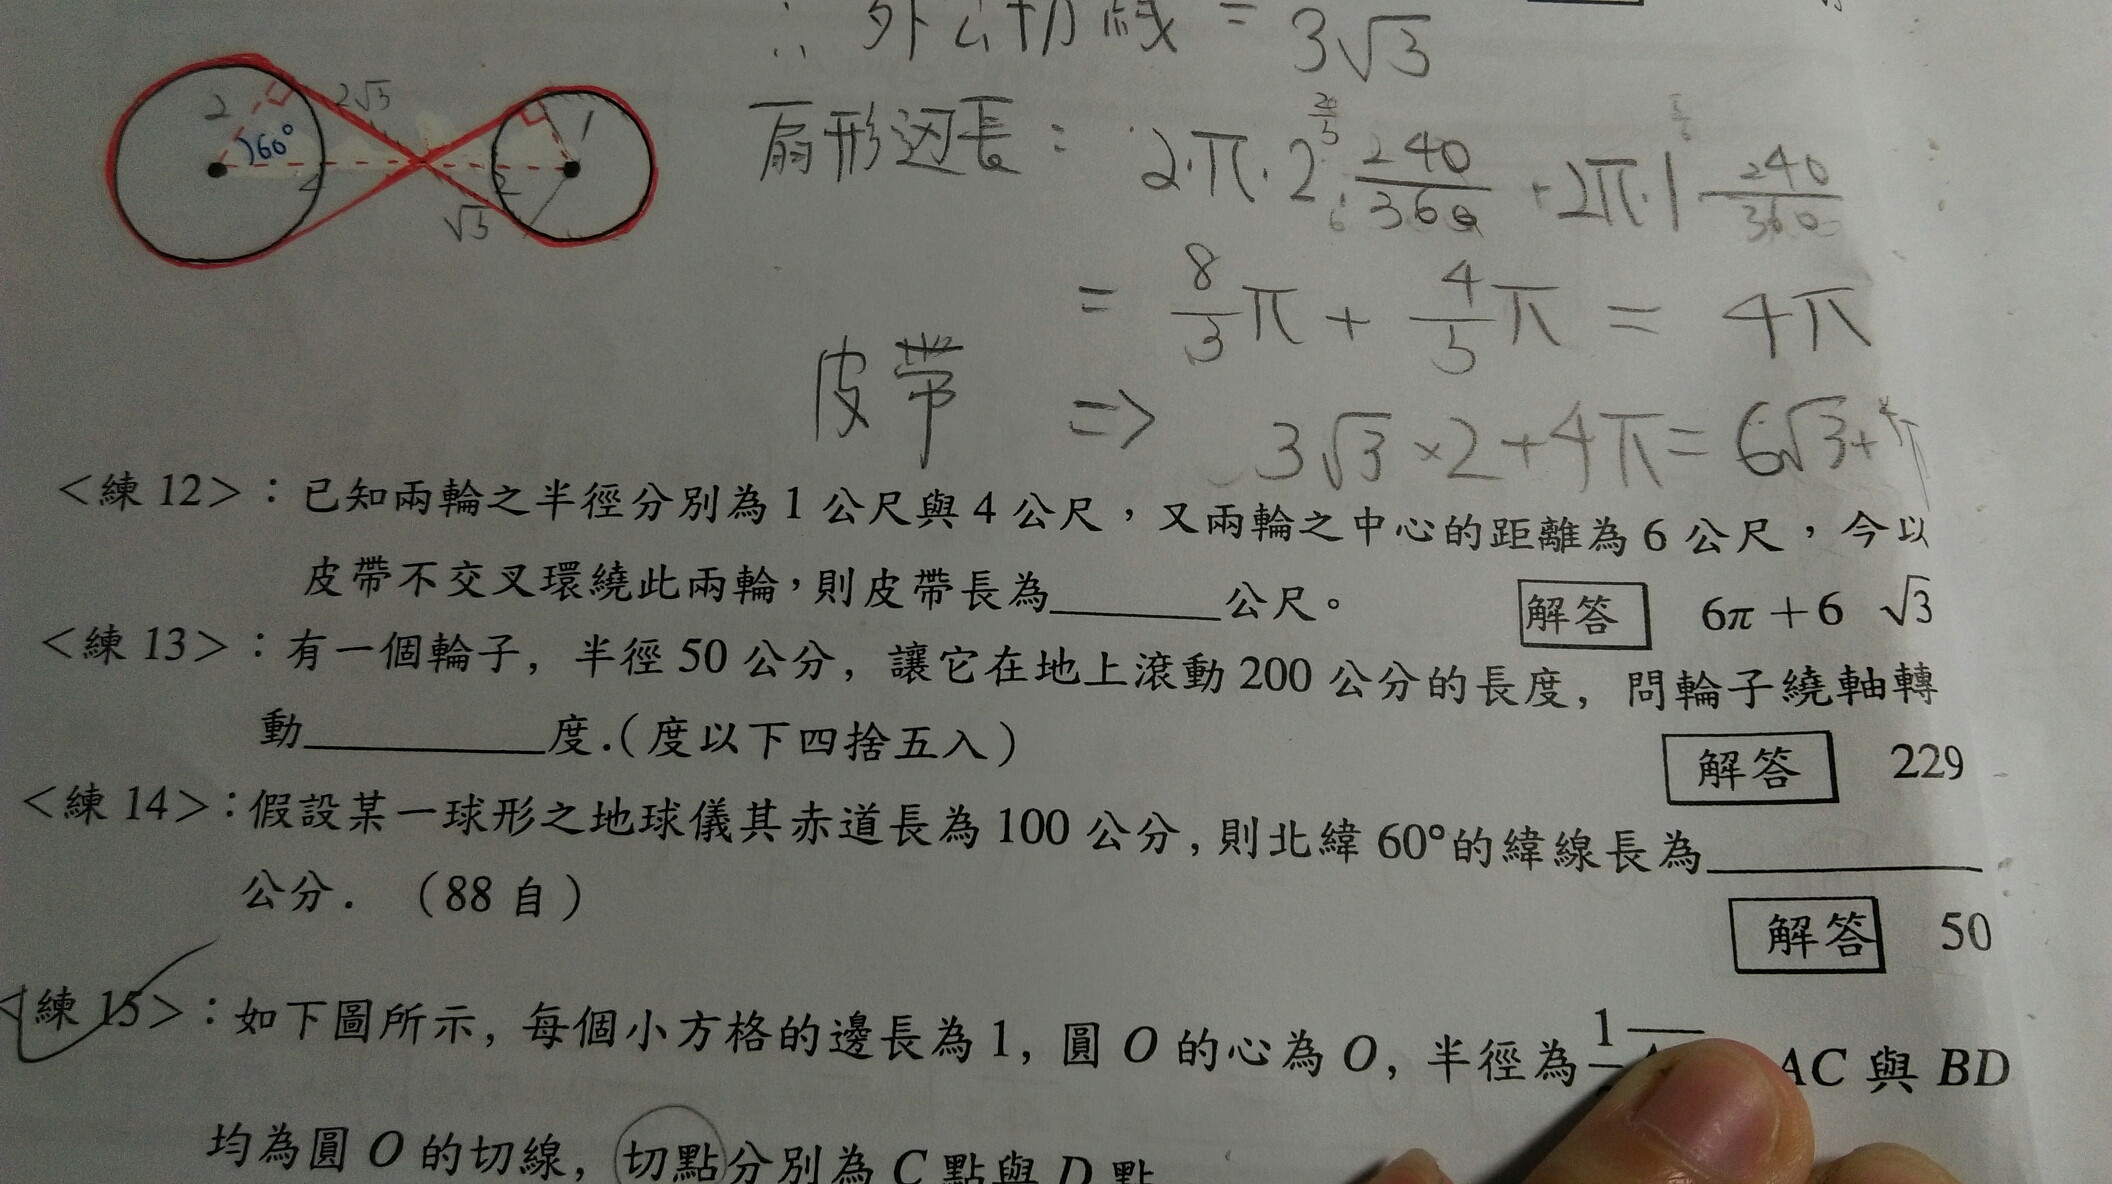 ∴ 外公切線 = 3√3
2 2√3 60° 4 2 √3 1
扇形边長: 2·π·2 240/360 + 2π·1 240/360
= 8/3 π + 4/3 π = 4π
皮帶 => 3√3 × 2 + 4π = 6√3 + 4π
<練 12>：已知兩輪之半徑分別為 1 公尺與 4 公尺，又兩輪之中心的距離為 6 公尺，今以
皮帶不交叉環繞此兩輪，則皮帶長為______公尺。 解答 6π + 6 √3
<練 13>：有一個輪子，半徑 50 公分，讓它在地上滾動 200 公分的長度，問輪子繞軸轉
動________度.(度以下四捨五入)
解答 229
<練 14>：假設某一球形之地球儀其赤道長為 100 公分，則北緯 60°的緯線長為________
公分. (88 自)
解答 50
<練 15>：如下圖所示，每個小方格的邊長為 1，圓 O 的心為 O，半徑為 AC 與 BD
均為圓 O 的切線，切點分別為 C 點與 D 點